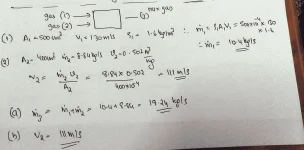 gas (1) → → (3) mix gas
gas (2) →
(1) A₁ = 500 cm² V₁ = 130 m/s ρ₁ = 1.6 kg/m³ ∴ ṁ₁ = ρ₁A₁V₁ = 500×10⁻⁴ × 130 × 1.6
∴ ṁ₁ = 10.4 kg/s
(2) A₂ = 400 cm² ṁ₂ = 8.84 kg/s ϑ₂ = 0.502 m³/kg
V₂ = ṁ₂ ϑ₂ / A₂ = 8.84 × 0.502 / 400×10⁻⁴ = 111 m/s
(a) ṁ₃ = ṁ₁ + ṁ₂ = 10.4 + 8.84 = 19.24 kg/s
(b) V₂ = 111 m/s